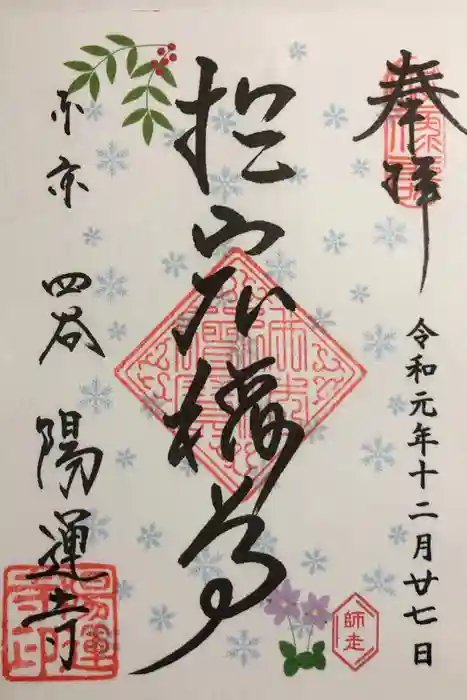 奉拝
令和元年十二月廿七日
於岩稲荷
師走
東京 四谷 陽運寺